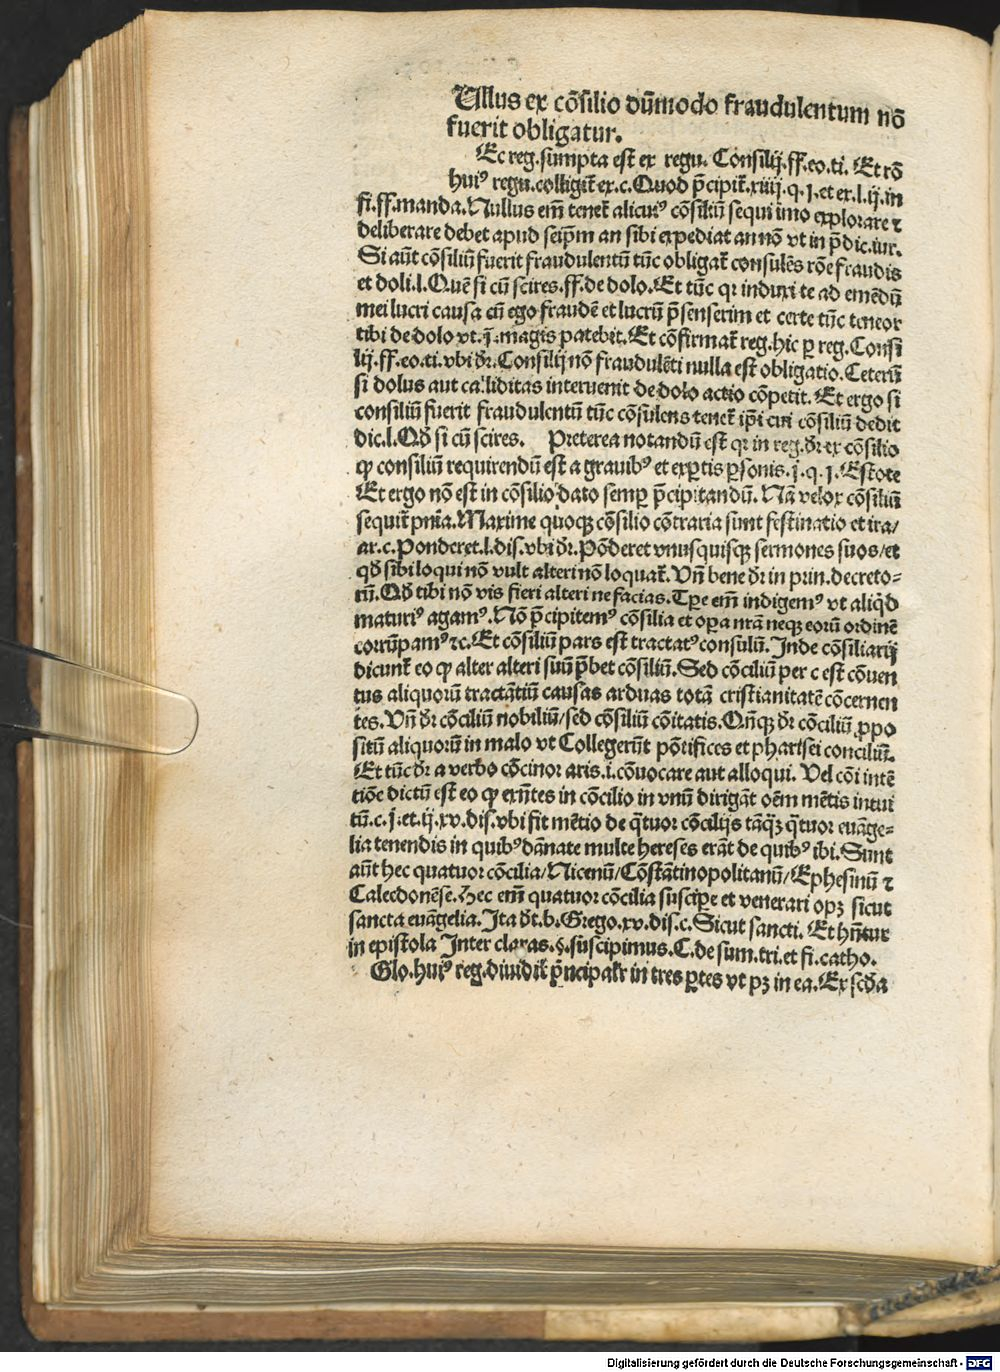 Ullus ex cōsilio dūmodo fraudulentum nō
fuerit obligatur.
Ec reg.sumpta est̄ ex regu. Consilij.ff.eo.ti. Et rō
huiꝰ regu.colligit̄ ex.c.Quod p̄cipit̄.xiiij.q.j.et ex.l.ij.in
fi.ff.manda.Nullus em̄ tenet̄ alicuiꝰ cōsiliū sequi imo explorare ⁊
deliberare debet apud seip̄m an sibi expediat an nō vt in p̄dic.iur.
Si aūt cōsiliū fuerit fraudulentū tūc obligat̄ consulēs rōe fraudis
et doli.l.Quē si cū scires.ff.de dolo.Et tūc qꝛ induxi te ad emēdū
mei lucri causa cū ego fraudē et lucrū p̄senserim et certe tūc teneor
tibi de dolo vt.j̄.magis patebit.Et cōfirmat̄ reg.hic ꝑ reg.Consi
lij.ff.eo.ti.vbi dꝛ̄.Consilij nō fraudulēti nulla est̄ obligatio.Ceterū
si dolus aut calliditas interuenit de dolo actio cōpetit.Et ergo si
consiliū fuerit fraudulentū tūc cōsulens tenet̄ ip̄i cui cōsiliū dedit
dic.l.Qđ si cū scires. Preterea notandū est̄ qꝛ in reg.dꝛ̄ ex cōsilio
ꝙ consiliū requirendū est a grauibꝰ et exꝑtis ꝑsonis.j̄.q.j.Estote
Et ergo nō est in cōsilio dato semꝑ p̄cipitandū.Nā velox cōsiliū
sequit̄ pnīa.Maxime quoqꝫ cōsilio cōtraria sunt festinatio et ira/
ar.c.Ponderet.l.dis.vbi dꝛ̄.Pōderet vnusquisqꝫ sermones suos/et
qđ sibi loqui nō vult alteri nō loquat̄.Vn̄ bene dꝛ̄ in prin.decreto⸗
rū.Qđ tibi nō vis fieri alteri ne facias.Tꝑe em̄ indigemꝰ vt aliqd̄
maturiꝰ agamꝰ.Nō p̄cipitemꝰ cōsilia et oꝑa nrā neqꝫ eorū ordinē
corrūpamꝰ ⁊c.Et cōsiliū pars est tractatꝰ consulū.Inde cōsiliarij
dicunt̄ eo ꝙ alter alteri suū p̄bet cōsiliū.Sed cōciliū per c est cōuen
tus aliquorū tractātiū causas arduas totā cristianitatē cōcernen
tes.Vn̄ dꝛ̄ cōciliū nobiliū/sed cōsiliū cōitatis.Qn̄qꝫ dꝛ̄ cōciliū ꝓpo
sitū aliquorū in malo vt Collegerūt pōtifices et pharisei conciliū.
Et tūc dꝛ̄ a verbo cōcinor aris.i.cōuocare aut alloqui. Vel cōi intē
tiōe dictū est̄ eo ꝙ exn̄tes in cōcilio in vnū dirigāt oēm mētis intui
tū.c.j̄.et.ij.xv.dis.vbi fit mētio de q̄tuor cōcilijs tāqꝫ q̄tuor euāge⸗
lia tenendis in quibꝰ dānate multe hereses erāt de quibꝰ ibi.Sunt
aūt hec quatuor cōcilia/Nicenū/Cōstātinopolitanū/Ephesinū ⁊
Calcedonēse.Hec em̄ quatuor cōcilia susciꝑe et venerari opꝫ sicut
sancta euāgelia.Ita dt̄.b.Grego.xv.dis.c.Sicut sancti. Et hn̄tur
in epistola Inter claras.§.suscipimus.C.de sum.tri.et fi.catho.
Glo.huiꝰ reg.diuidit̄ p̄ncipalr̄ in tres ꝑtes vt pꝫ in ea.Ex scd̄a
Digitalisierung gefördert durch die Deutsche Forschungsgemeinschaft - DFG